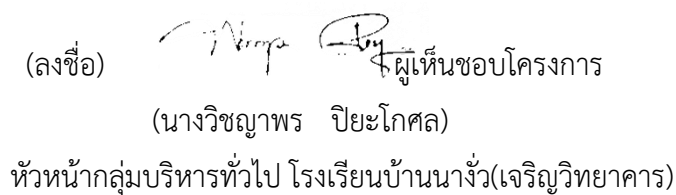 (ลงชื่อ) ผู้เห็นชอบโครงการ
(นางวิชญาพร ปิยะโกศล)
หัวหน้ากลุ่มบริหารทั่วไป โรงเรียนบ้านนางั่ว(เจริญวิทยาคาร)